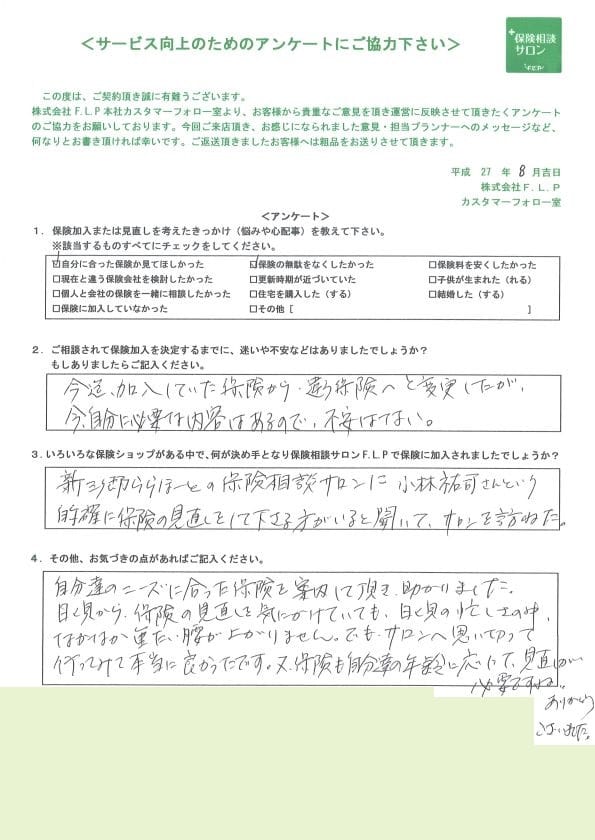 <サービス向上のためのアンケートにご協力下さい>
保険相談
サロン
F.L.P
この度は、ご契約頂き誠に有難うございます。
株式会社F.L.P本社カスタマーフォロー室より、お客様から貴重なご意見を頂き運営に反映させて頂きたくアンケート
のご協力をお願いしております。今回ご来店頂き、お感じになられました意見・担当プランナーへのメッセージなど、
何なりとお書き頂ければ幸いです。ご返送頂きましたお客様へは粗品をお送りさせて頂きます。
平成 27 年 8 月吉日
株式会社F.L.P
カスタマーフォロー室
<アンケート>
1．保険加入または見直しを考えたきっかけ（悩みや心配事）を教えて下さい。
※該当するものすべてにチェックをしてください。
☑自分に合った保険か見てほしかった ☑保険の無駄をなくしたかった □保険料を安くしたかった
□現在と違う保険会社を検討したかった □更新時期が近づいていた □子供が生まれた（れる）
□個人と会社の保険を一緒に相談したかった □住宅を購入した（する） □結婚した（する）
□保険に加入していなかった □その他 [ ]
2．ご相談されて保険加入を決定するまでに、迷いや不安などはありましたでしょうか？
もしありましたらご記入ください。
今迄、加入していた保険から、違う保険へと変更したが、
今、自分に必要な内容はあるので、不安はない。
3．いろいろな保険ショップがある中で、何が決め手となり保険相談サロンF.L.Pで保険に加入されましたでしょうか？
新三郷ららぽーとの保険相談サロンに 小林祐司さんという
的確に保険の見直しをして下さる方がいると聞いて、サロンを訪ねた。
4．その他、お気づきの点があればご記入ください。
自分達のニーズに合った保険を案内して頂き、助かりました。
日頃から、保険の見直しを気にかけていても、日頃の忙しさの中、
なかなか重たい腰が上がりません。でも、サロンへ思い切って
行ってみて本当に良かったです。又、保険も自分達の年齢に応じて、見直しが
必要ですね。
ありがとう
ございました。